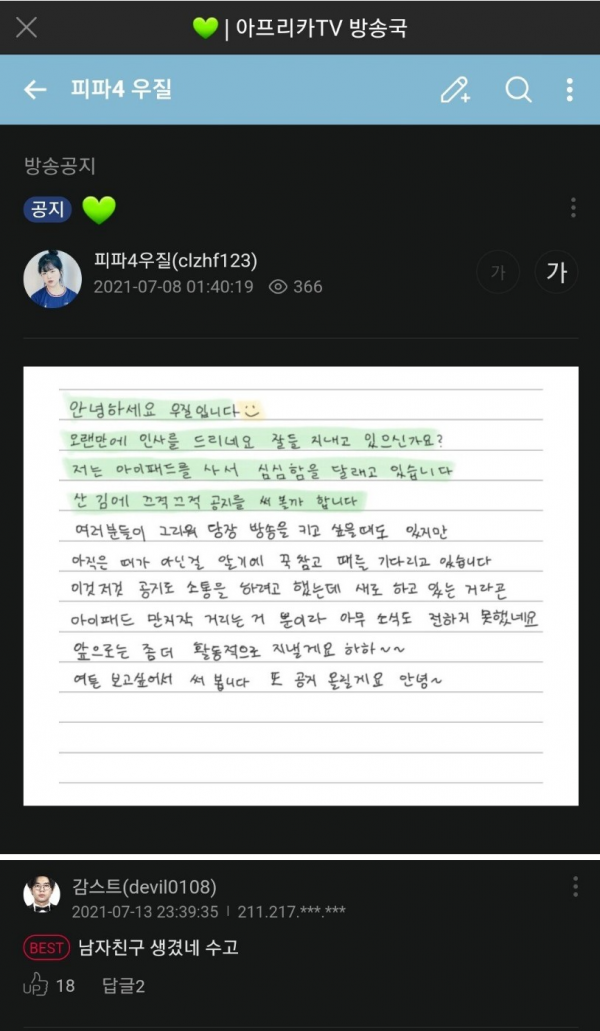 💚 | 아프리카TV 방송국
피파4 우질
방송공지
공지 💚
피파4우질(clzhf123)
2021-07-08 01:40:19 366
가 가
안녕하세요 우질입니다
오랜만에 인사를 드리네요 잘들 지내고 있으신가요?
저는 아이패드를 사서 심심함을 달래고 있습니다
산 김에 끄적끄적 공지를 써 볼까 합니다
여러분들이 그리워 당장 방송을 키고 싶을때도 있지만
아직은 때가 아닌걸 알기에 꾹 참고 때를 기다리고 있습니다
이것저것 공지도 소통을 하려고 했는데 새로 하고 있는 거라곤
아이패드 만지작 거리는 거 뿐이라 아무 소식도 전하지 못했네요
앞으로는 좀 더 활동적으로 지낼게요 하하~~
여튼 보고싶어서 써 봅니다 또 공지 올릴게요 안녕~
감스트(devil0108)
2021-07-13 23:39:35 | 211.217.***.***
BEST 남자친구 생겼네 수고
UP 18 답글2